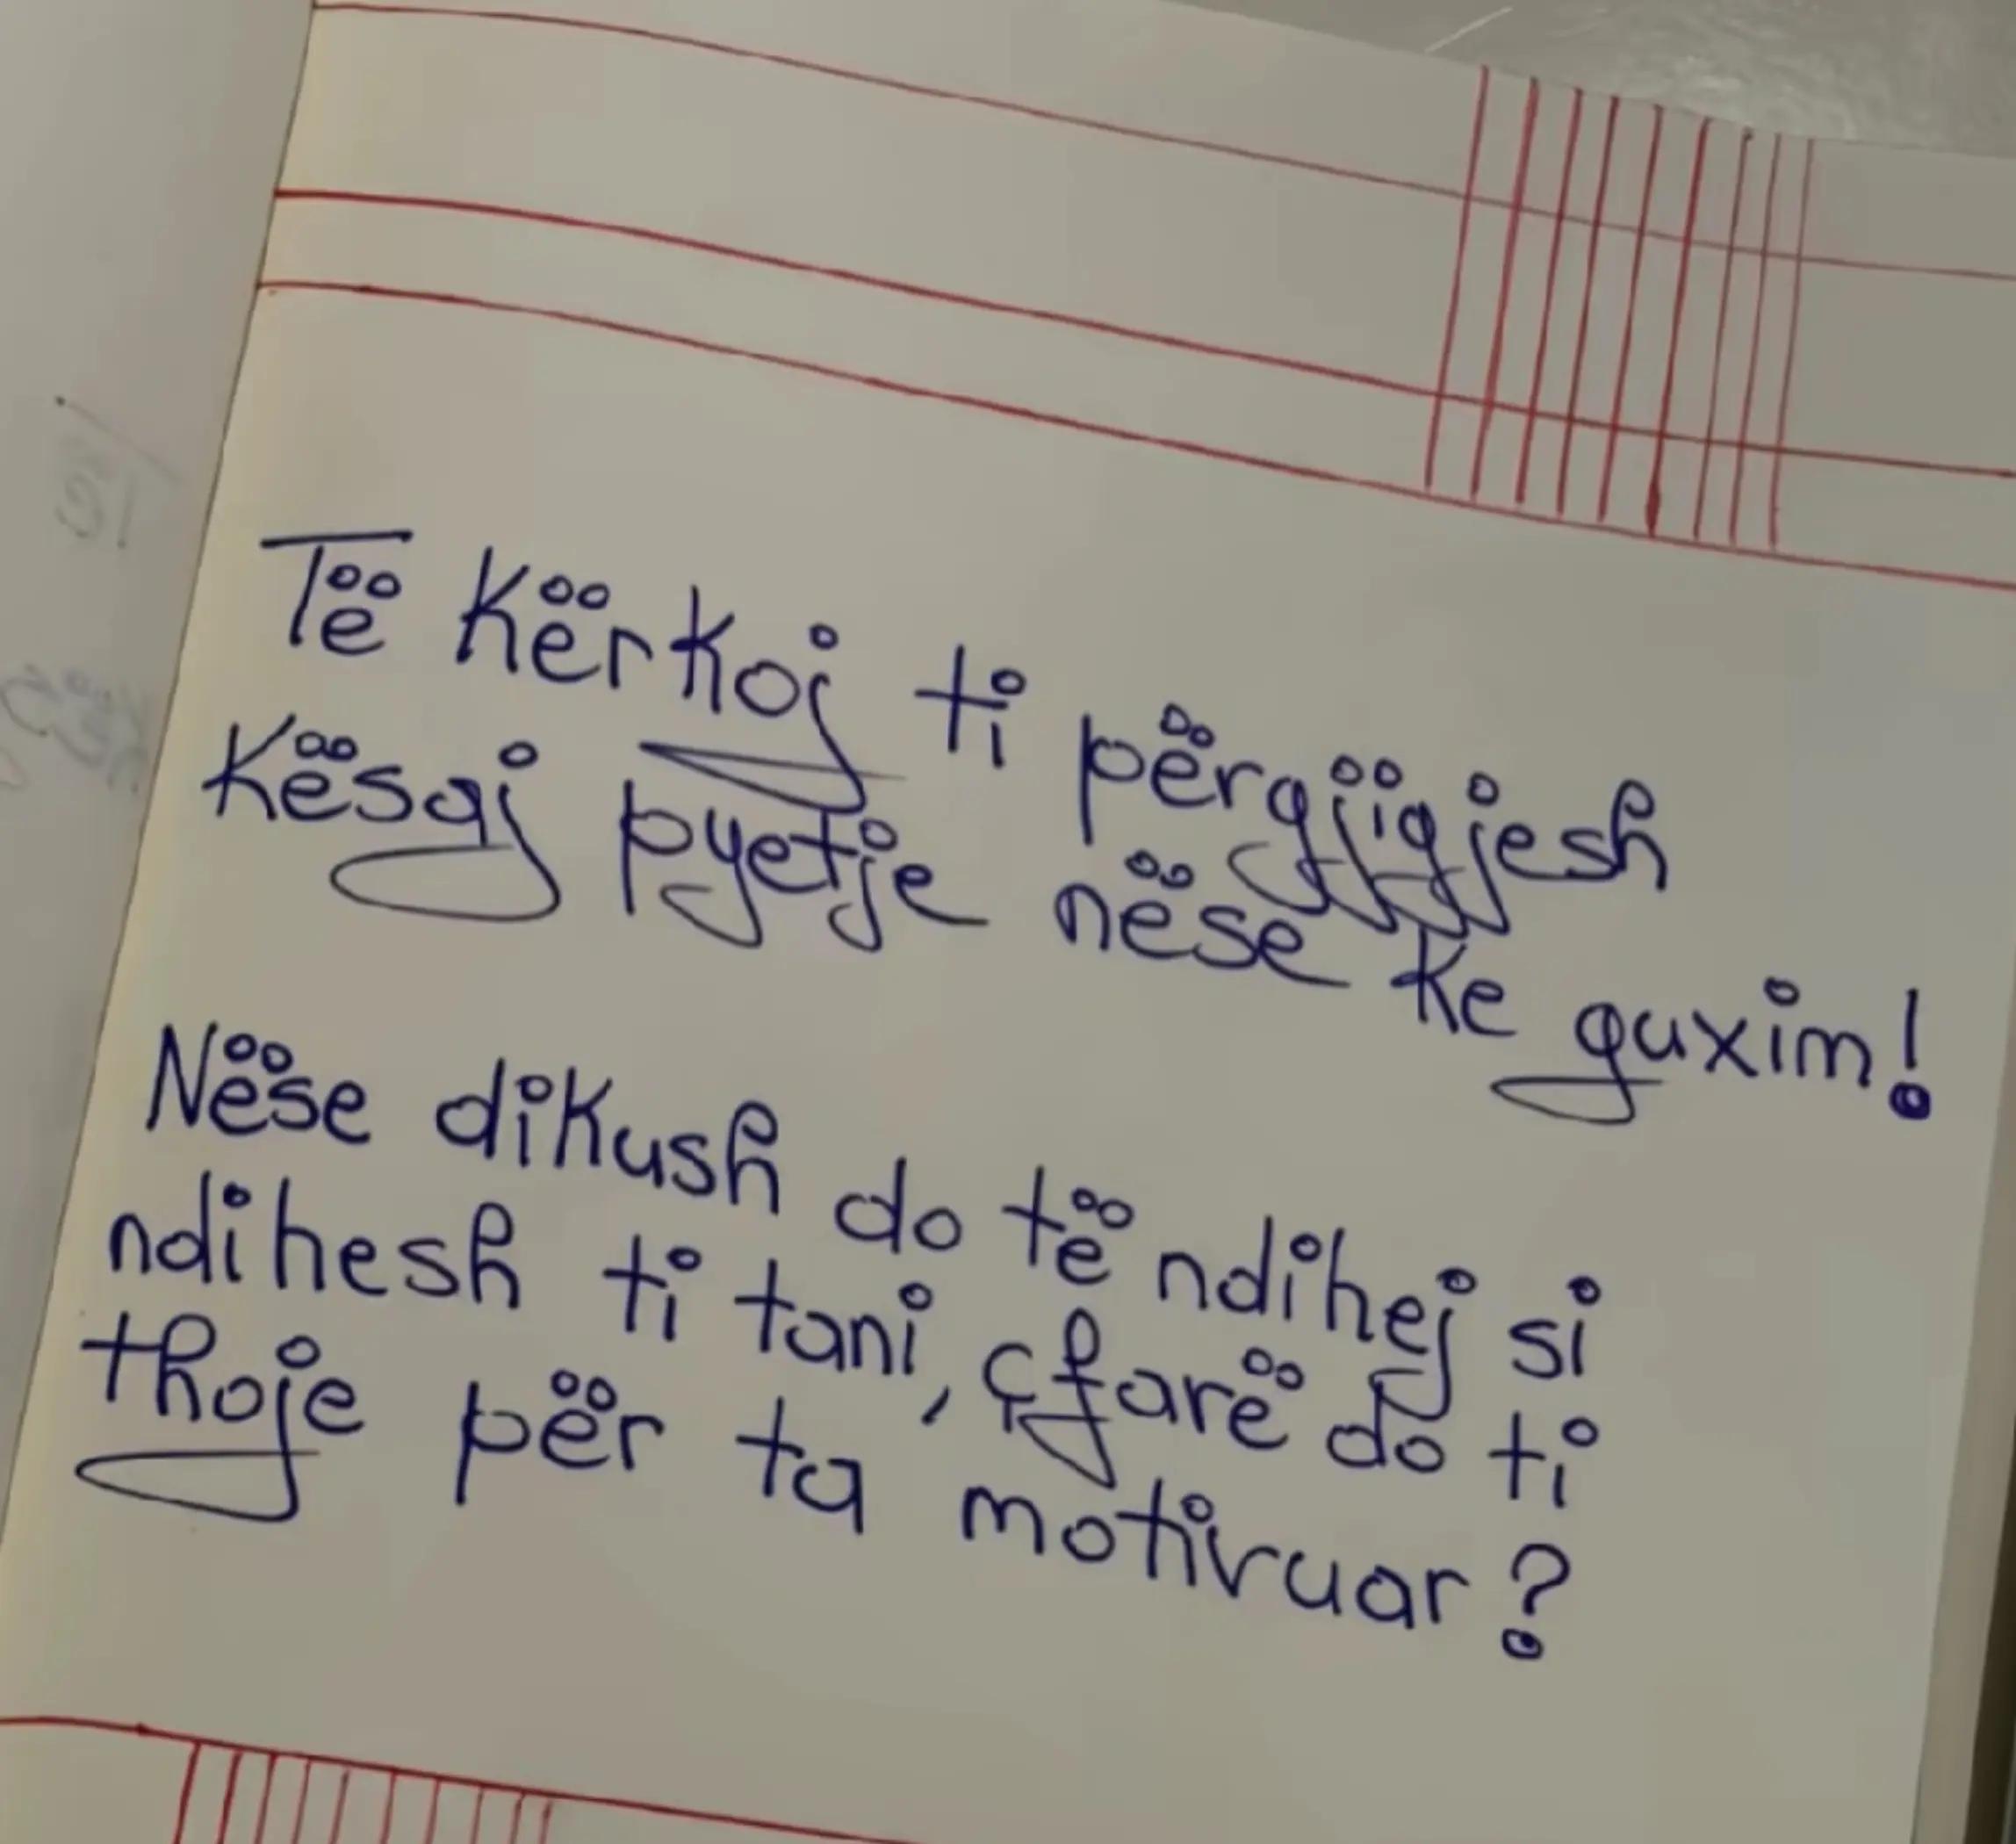 Të kërkoj ti përgjigjesh
kësaj pyetje nëse ke guxim!
Nëse dikush do të ndihej si
ndihesh ti tani, çfarë do ti
thoje për ta motivuar?